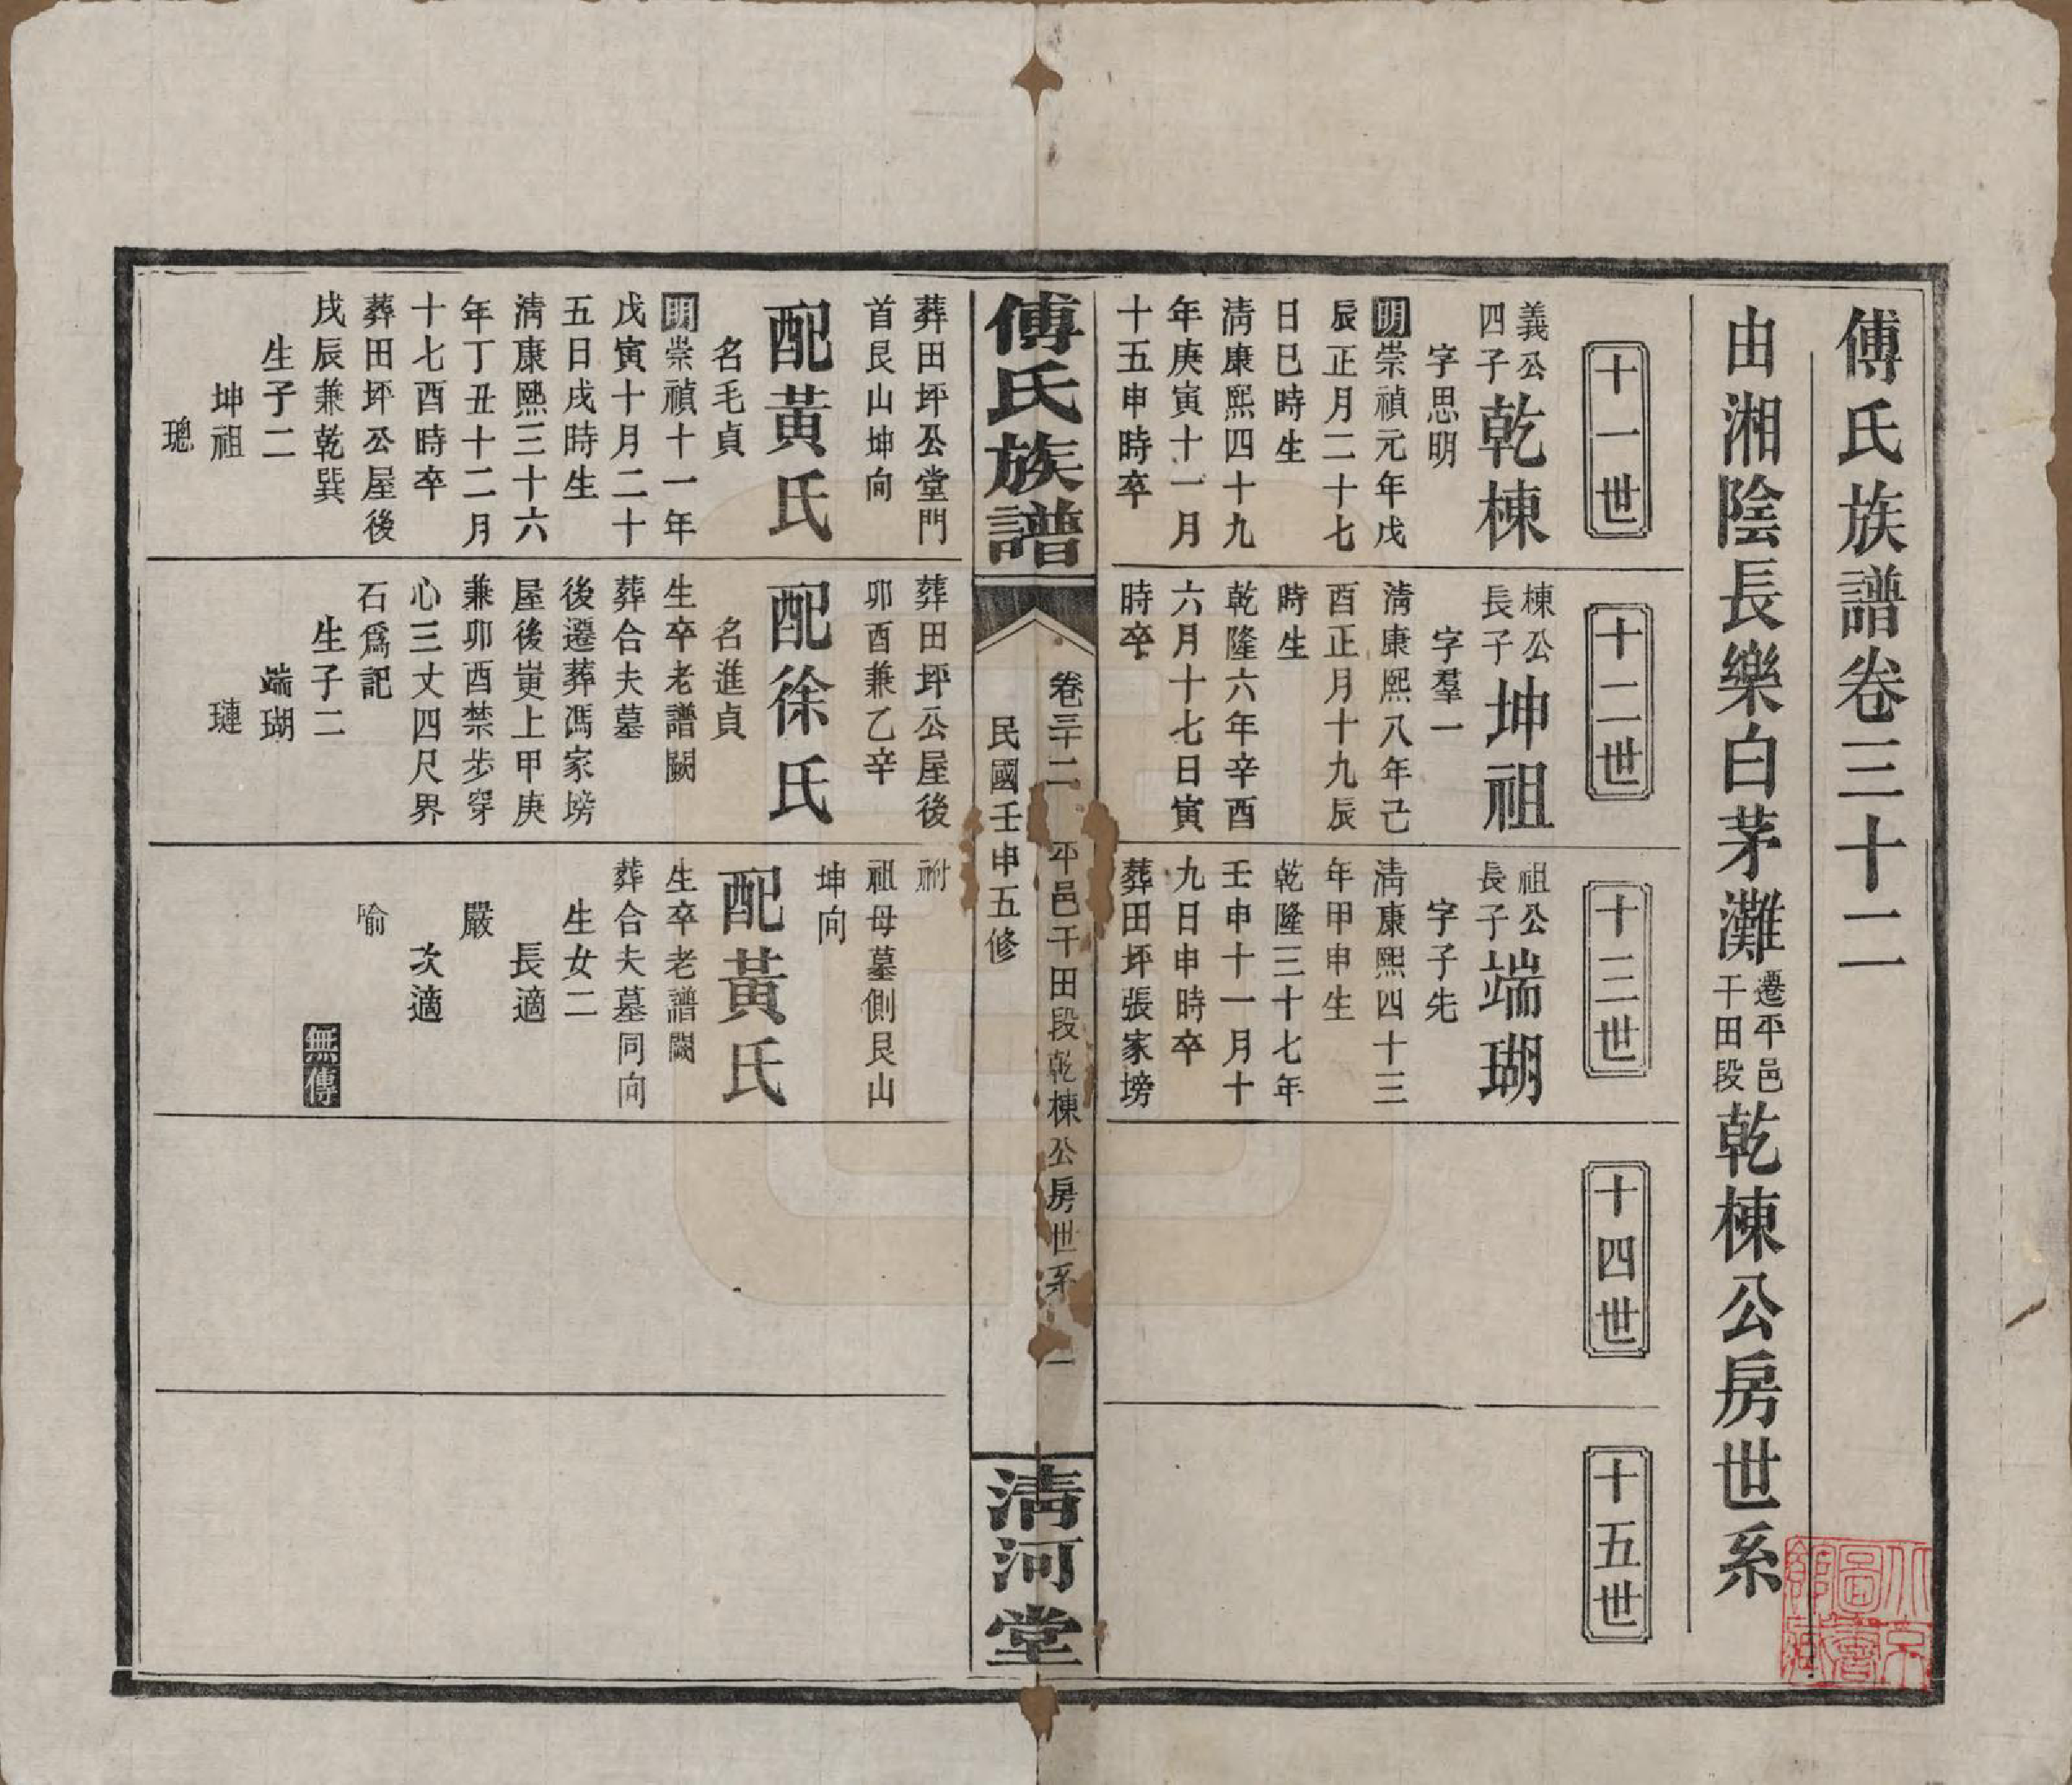 傅氏族譜卷三十二
由湘陰長樂白茅灘遷平邑干田段乾棟公房世系
十一世
義公四子乾棟
字思明
明崇禎元年戊
辰正月二十七
日巳時生
清康熙四十九
年庚寅十一月
十五申時卒
葬田坪公堂門
首艮山坤向
配黃氏
名毛貞
明崇禎十一年
戊寅十月二十
五日戌時生
清康熙三十六
年丁丑十二月
十七酉時卒
葬田坪公屋後
戌辰兼乾巽
生子二
坤祖
璁
十二世
棟公長子坤祖
字羣一
清康熙八年己
酉正月十九辰
時生
乾隆六年辛酉
六月十七日寅
時卒
葬田坪公屋後
卯酉兼乙辛
配徐氏
名進貞
生卒老譜闕
葬合夫墓
後遷葬馮家塝
屋後嵏上甲庚
兼卯酉禁步穿
心三丈四尺界
石爲記
生子二
端瑚
璉
十三世
祖公長子端瑚
字子先
清康熙四十三
年甲申生
乾隆三十七年
壬申十一月十
九日申時卒
葬田坪張家塝
祔
祖母墓側艮山
坤向
配黃氏
生卒老譜闕
葬合夫墓同向
生女二
長適
嚴
次適
喻
無傳
十四世
十五世
傅氏族譜
卷三十二 平邑干田段乾棟公房世系 一
民國壬申五修
清河堂
北京圖書館藏